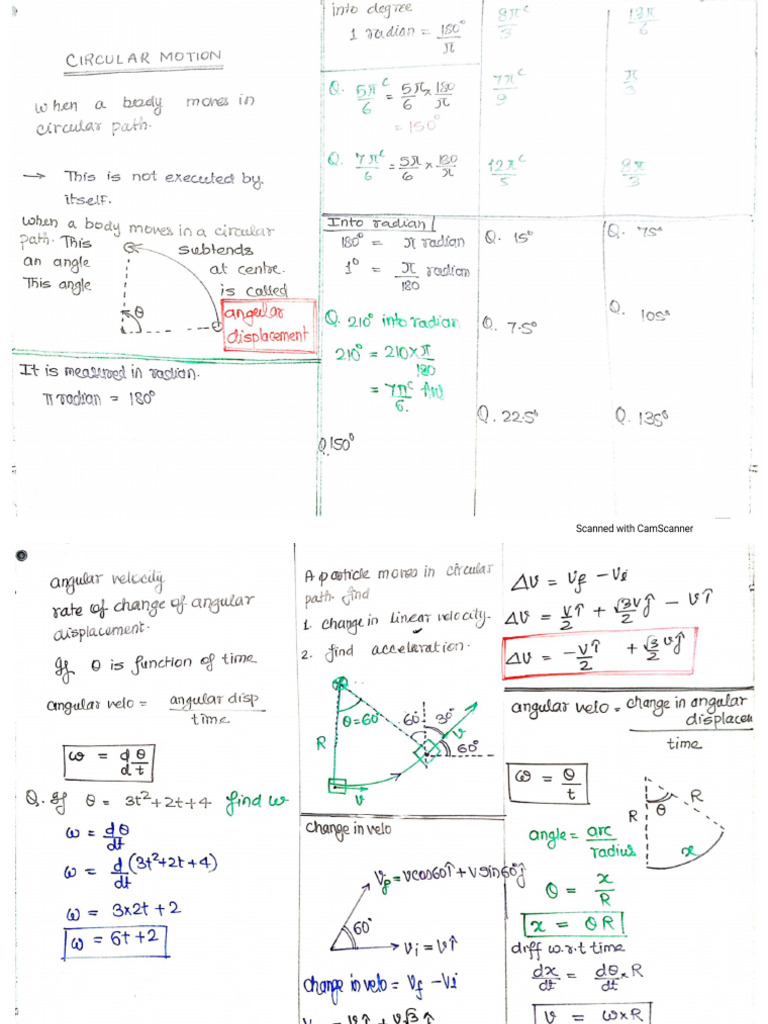 CIRCULAR MOTION
When a body moves in
circular path.
→ This is not executed by
itself.
When a body moves in a circular
path. This subtends
an angle at centre.
This angle is called
angular
displacement
θ
It is measured in radian.
π radian = 180°
into degree
1 radian = 180°/π
Q. 5π^c/6 = 5π/6 × 180/π
= 150°
Q. 7π^c/6 = 5π/6 × 180/π
8π^c/3
13π/6
7π^c/9
π/3
12π^c/5
8π/3
Into radian
180° = π radian
1° = π/180 radian
Q. 210° into radian
210° = 210×π/180
= 7π^c/6. Ans
Q. 150°
Q. 15°
Q. 75°
Q. 7.5°
Q. 105°
Q. 22.5°
Q. 135°
Scanned with CamScanner
angular velocity
rate of change of angular
displacement.
If θ is function of time
angular velo = angular disp/time
ω = dθ/dt
Q. If θ = 3t²+2t+4 find ω
ω = dθ/dt
ω = d/dt (3t²+2t+4)
ω = 3×2t+2
ω = 6t+2
A particle moves in circular
path. find
1. change in linear velocity.
2. find acceleration.
θ=60°
60°
30°
R
v
60°
v
change in velo
Vf = vcos60î + vsin60°ĵ
60°
Vi = vî
change in velo = Vf - Vi
Δv = Vf - Vi
Δv = v/2 î + √3v/2 ĵ - vî
Δv = -v/2 î + √3/2 vĵ
angular velo = change in angular
displacem
time
ω = θ/t
R
θ
R
x
angle = arc/radius
θ = x/R
x = θR
diff w.r.t time
dx/dt = dθ/dt × R
v = ω×R